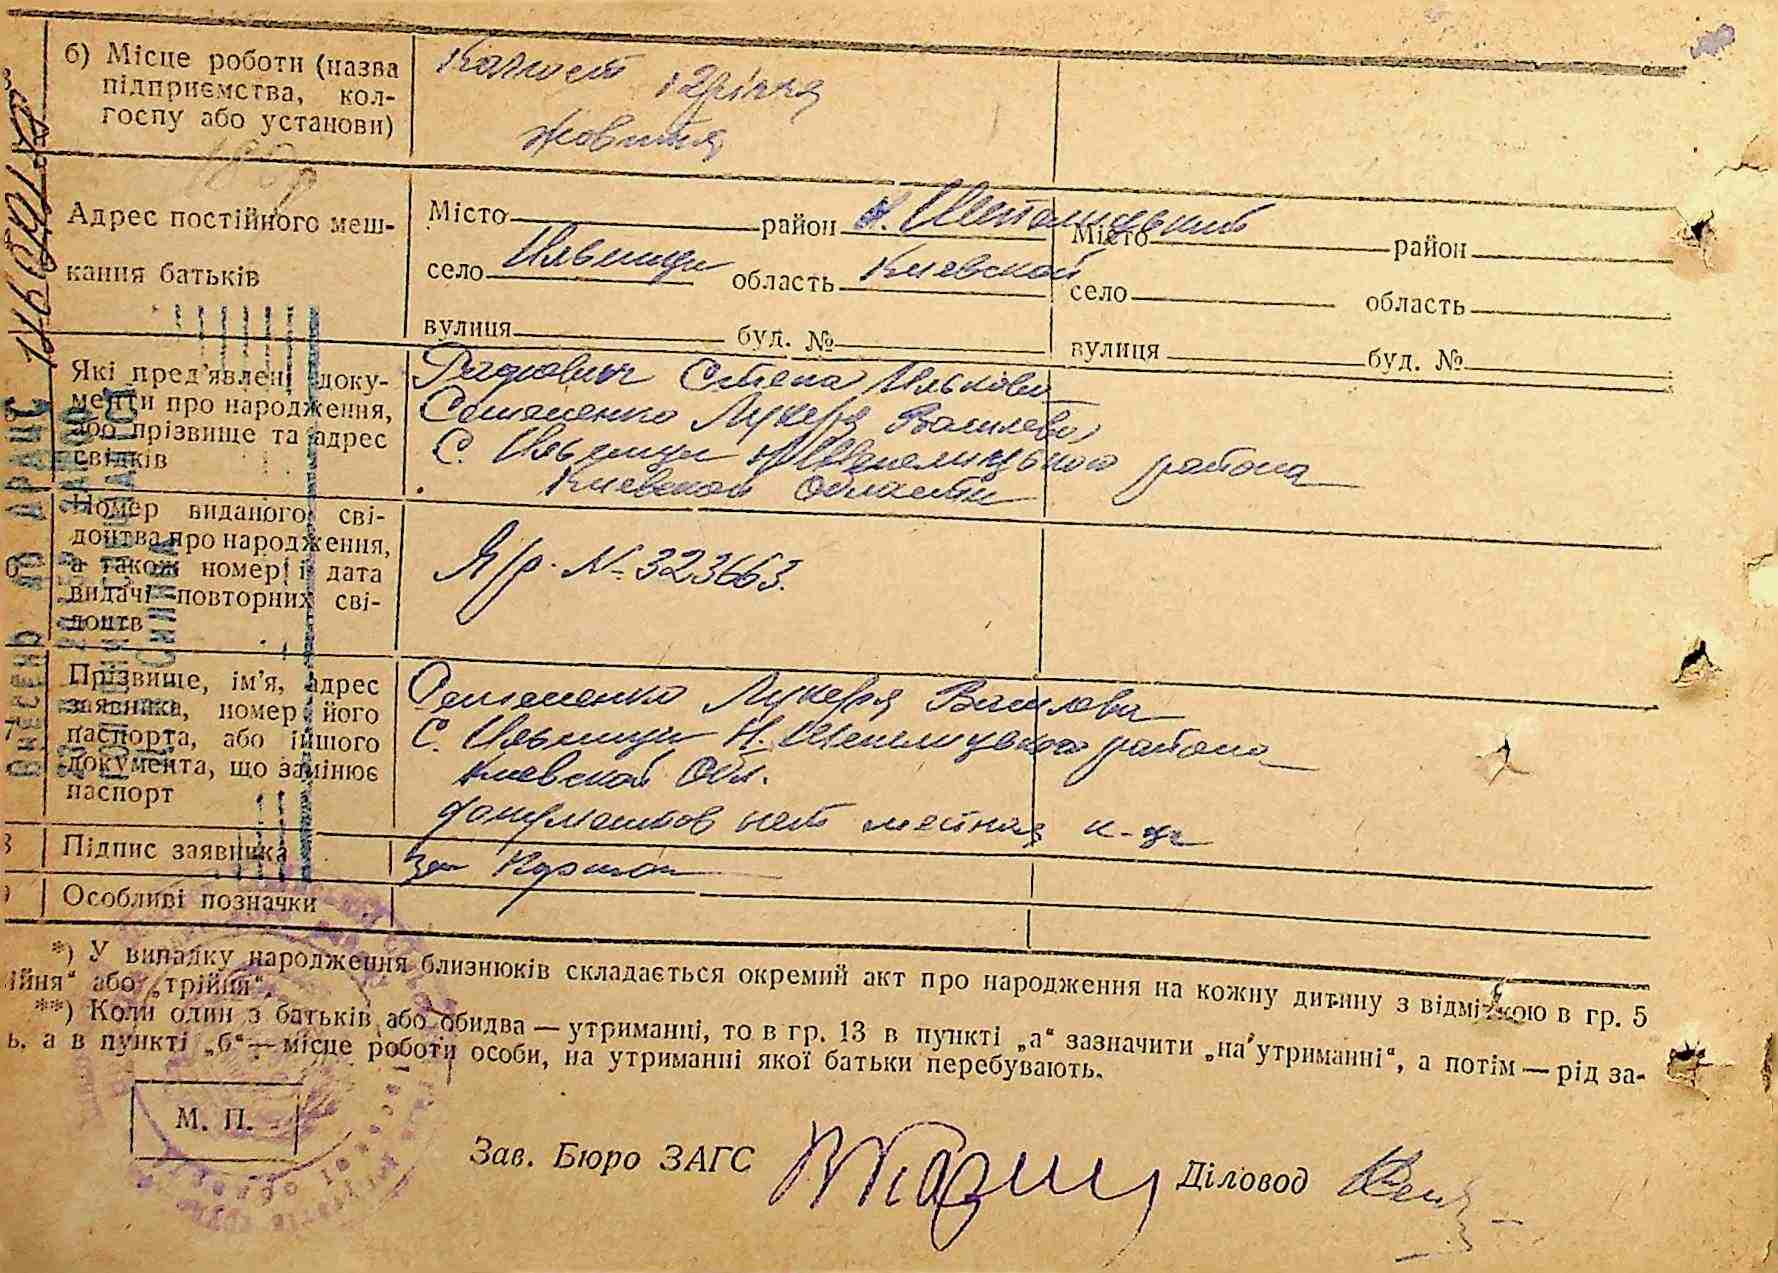 б) Місце роботи (назва
підприємства, кол-
госпу або установи)
Колгосп 12 річчя
Жовтня
Адрес постійного меш-
кання батьків
Місто район Н. Шепелицький
село Ильинци область Киевской
вулиця буд. №
Місто район
село область
вулиця буд. №
Які пред'явлені доку-
менти про народження,
або прізвище та адрес
свідків
Степа Ильковна
Остапенко Лукеря Василевна
С. Ильинци Н Шепелицького района
Киевской Области
Номер виданого сві-
доцтва про народження,
а також номер і дата
видачі повторних сві-
доцтв
№ 323663.
Прізвище, ім'я, адрес
заявника, номер його
паспорта, або іншого
документа, що замінює
паспорт
Остапенко Лукеря Василевна
С. Ильинци Н. Шепелицького района
Киевской Обл.
документов нет
8 Підпис заявника
9 Особливі позначки
*) У випадку народження близнюків складається окремий акт про народження на кожну дитину з відміткою в гр. 5
ійня“ або „трійня“.
**) Коли один з батьків або обидва — утриманці, то в гр. 13 в пункті „а“ зазначити „на утриманні“, а потім — рід за-
ь, а в пункті „б“ — місце роботи особи, на утриманні якої батьки перебувають.
М. П.
Зав. Бюро ЗАГС
Діловод